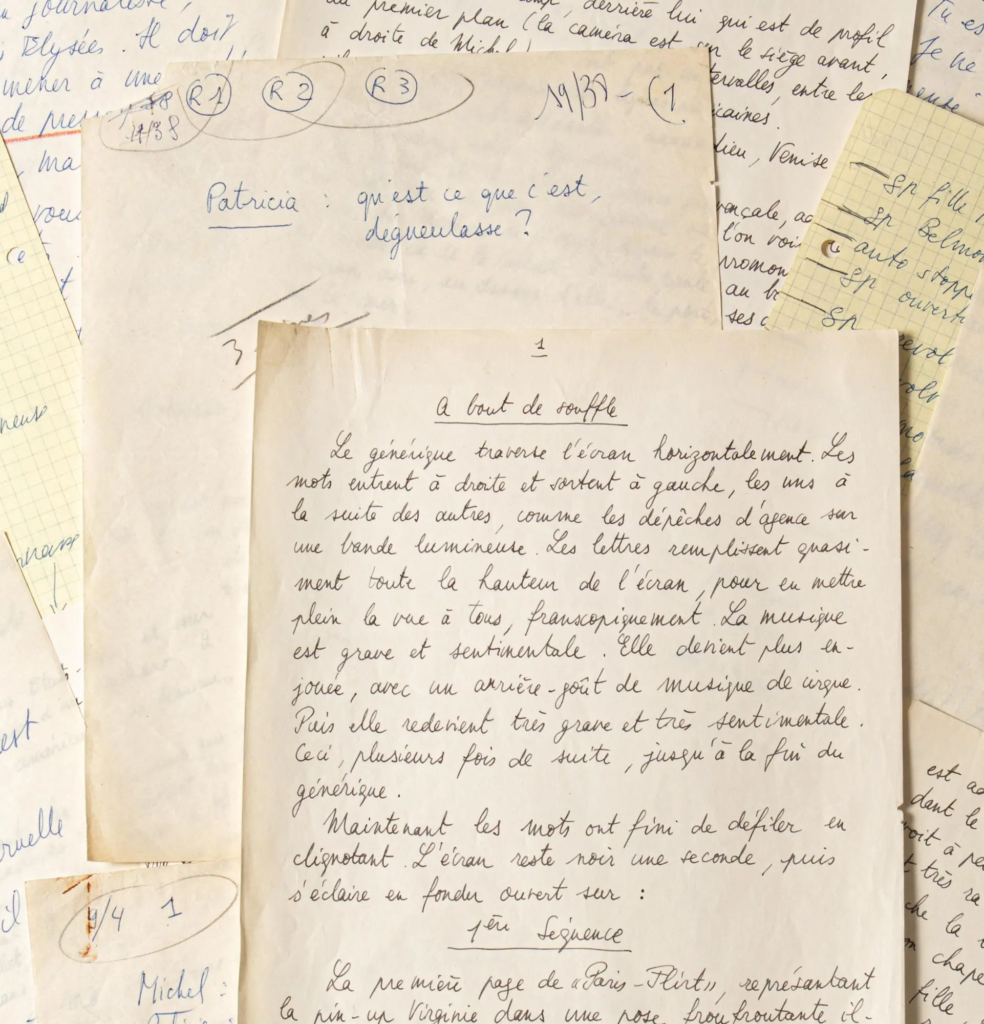 journaliste,
Elysées. Il doit
mener à une
de press
, ma
vous
ce
derrière lui qui est de profil
du premier plan (la caméra est sur le siège avant,
à droite de Michel)
intervalles, entre les
icaines.
lieu, Venise
l'on voi
au b
ses
Tu es
Je ne
R1 R2 R3
19/38 - (1.
Patricia : qu'est ce que c'est,
dégueulasse ?
3
Sp fille
Sp Belmo
auto stoppe
Sp ouvert
Sp
1
A bout de souffle
Le générique traverse l'écran horizontalement. Les
mots entrent à droite et sortent à gauche, les uns à
la suite des autres, comme les dépêches d'agence sur
une bande lumineuse. Les lettres remplissent quasi-
ment toute la hauteur de l'écran, pour en mettre
plein la vue à tous, franscopiquement. La musique
est grave et sentimentale. Elle devient plus en-
jouée, avec un arrière-goût de musique de cirque.
Puis elle redevient très grave et très sentimentale.
Ceci, plusieurs fois de suite, jusqu'à la fin du
générique.
Maintenant les mots ont fini de défiler en
clignotant. L'écran reste noir une seconde, puis
s'éclaire en fondu ouvert sur :
1ère Séquence
La première page de «Paris-Flirt», représentant
la pin-up Virginie dans une pose froufroutante il-
9/4 1
Michel :
est a
dant le
voit à pe
très ra
che la
chape
fille